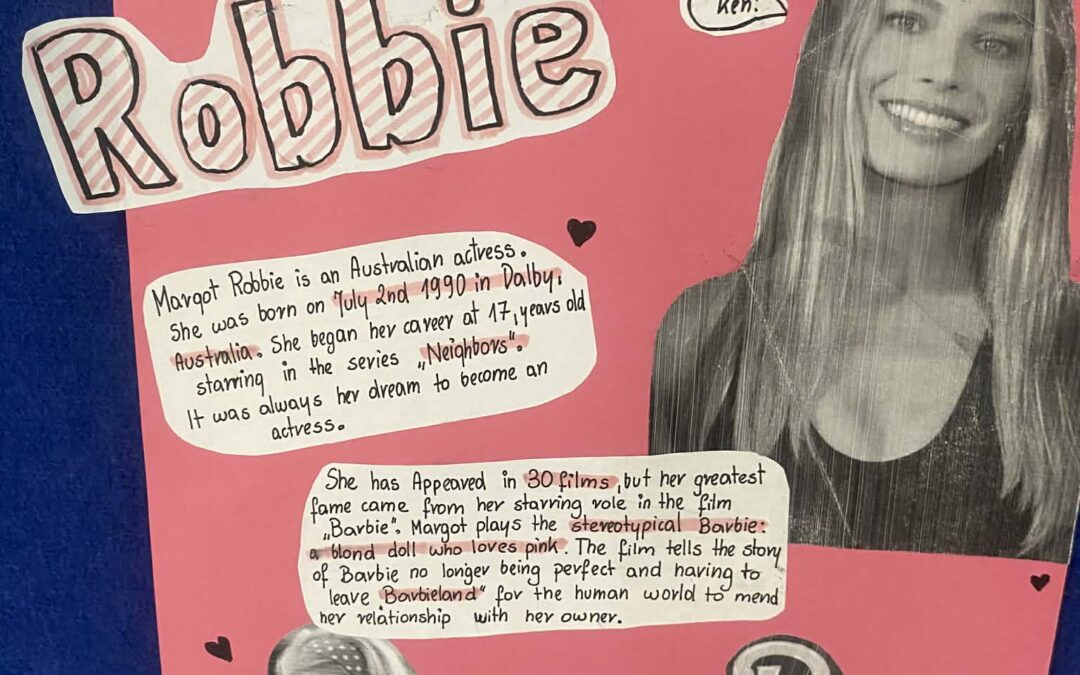 Robbie
Ken!
Margot Robbie is an Australian actress.
She was born on July 2nd 1990 in Dalby,
Australia. She began her career at 17, years old
starring in the series „Neighbors".
It was always her dream to become an
actress.
She has Appeared in 30 films, but her greatest
fame came from her starring role in the film
„Barbie". Margot plays the stereotypical Barbie:
a blond doll who loves pink. The film tells the story
of Barbie no longer being perfect and having to
leave „Barbieland" for the human world to mend
her relationship with her owner.